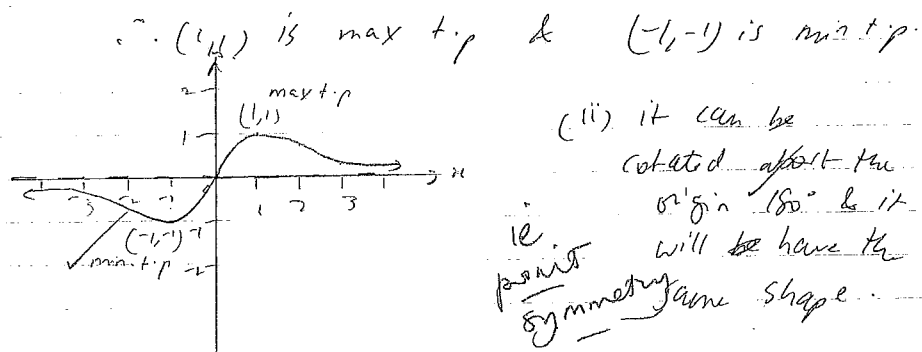 ∴ (1,1) is max t.p & (-1,-1) is min t.p.
2
max t.p
(1,1)
1
-3 -2 -1 1 2 3 x
(-1,-1) -1
min t.p -2
(ii) it can be
rotated about the
origin 180° & it
will be have the
same shape.
ie
point
symmetry